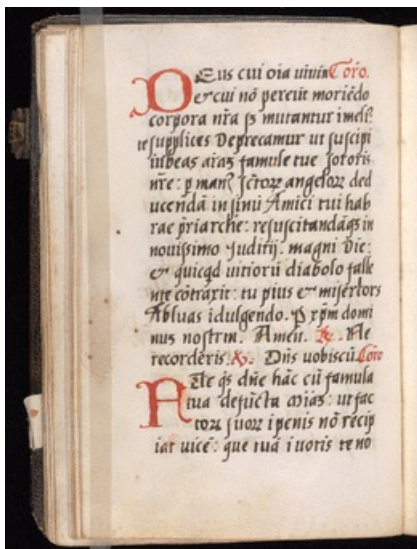 Deus cui oīa uiuūt Coro.
et cui nō pereūt moriēdo
corpora nr̄a sʒ mutantur i meliꝰ
te supplices deprecamur ut suscipi
iubeas aīaʒ famule tue sororis
nr̄e: p manꝰ sc̄torʒ angelorʒ ded
ucendā in sinū Amici tui hab
rae p̄riarche: resuscitandāqʒ in
nouissimo Juditij. magni die:
et quicqd uitiorū diabolo falle
nte cōtraxit: tu pius et misertors
Abluas idulgendo. P xp̄m domi
num nostrm. Amen. ℟. Ne
recorderis. ℣. Dn̄s uobiscū. Coro
FAc qs dn̄e hāc cū famula
tua defūcta mīaʒ: ut fac
torʒ suorʒ i penis nō recip
iat uicē: que tuā i uotis te no